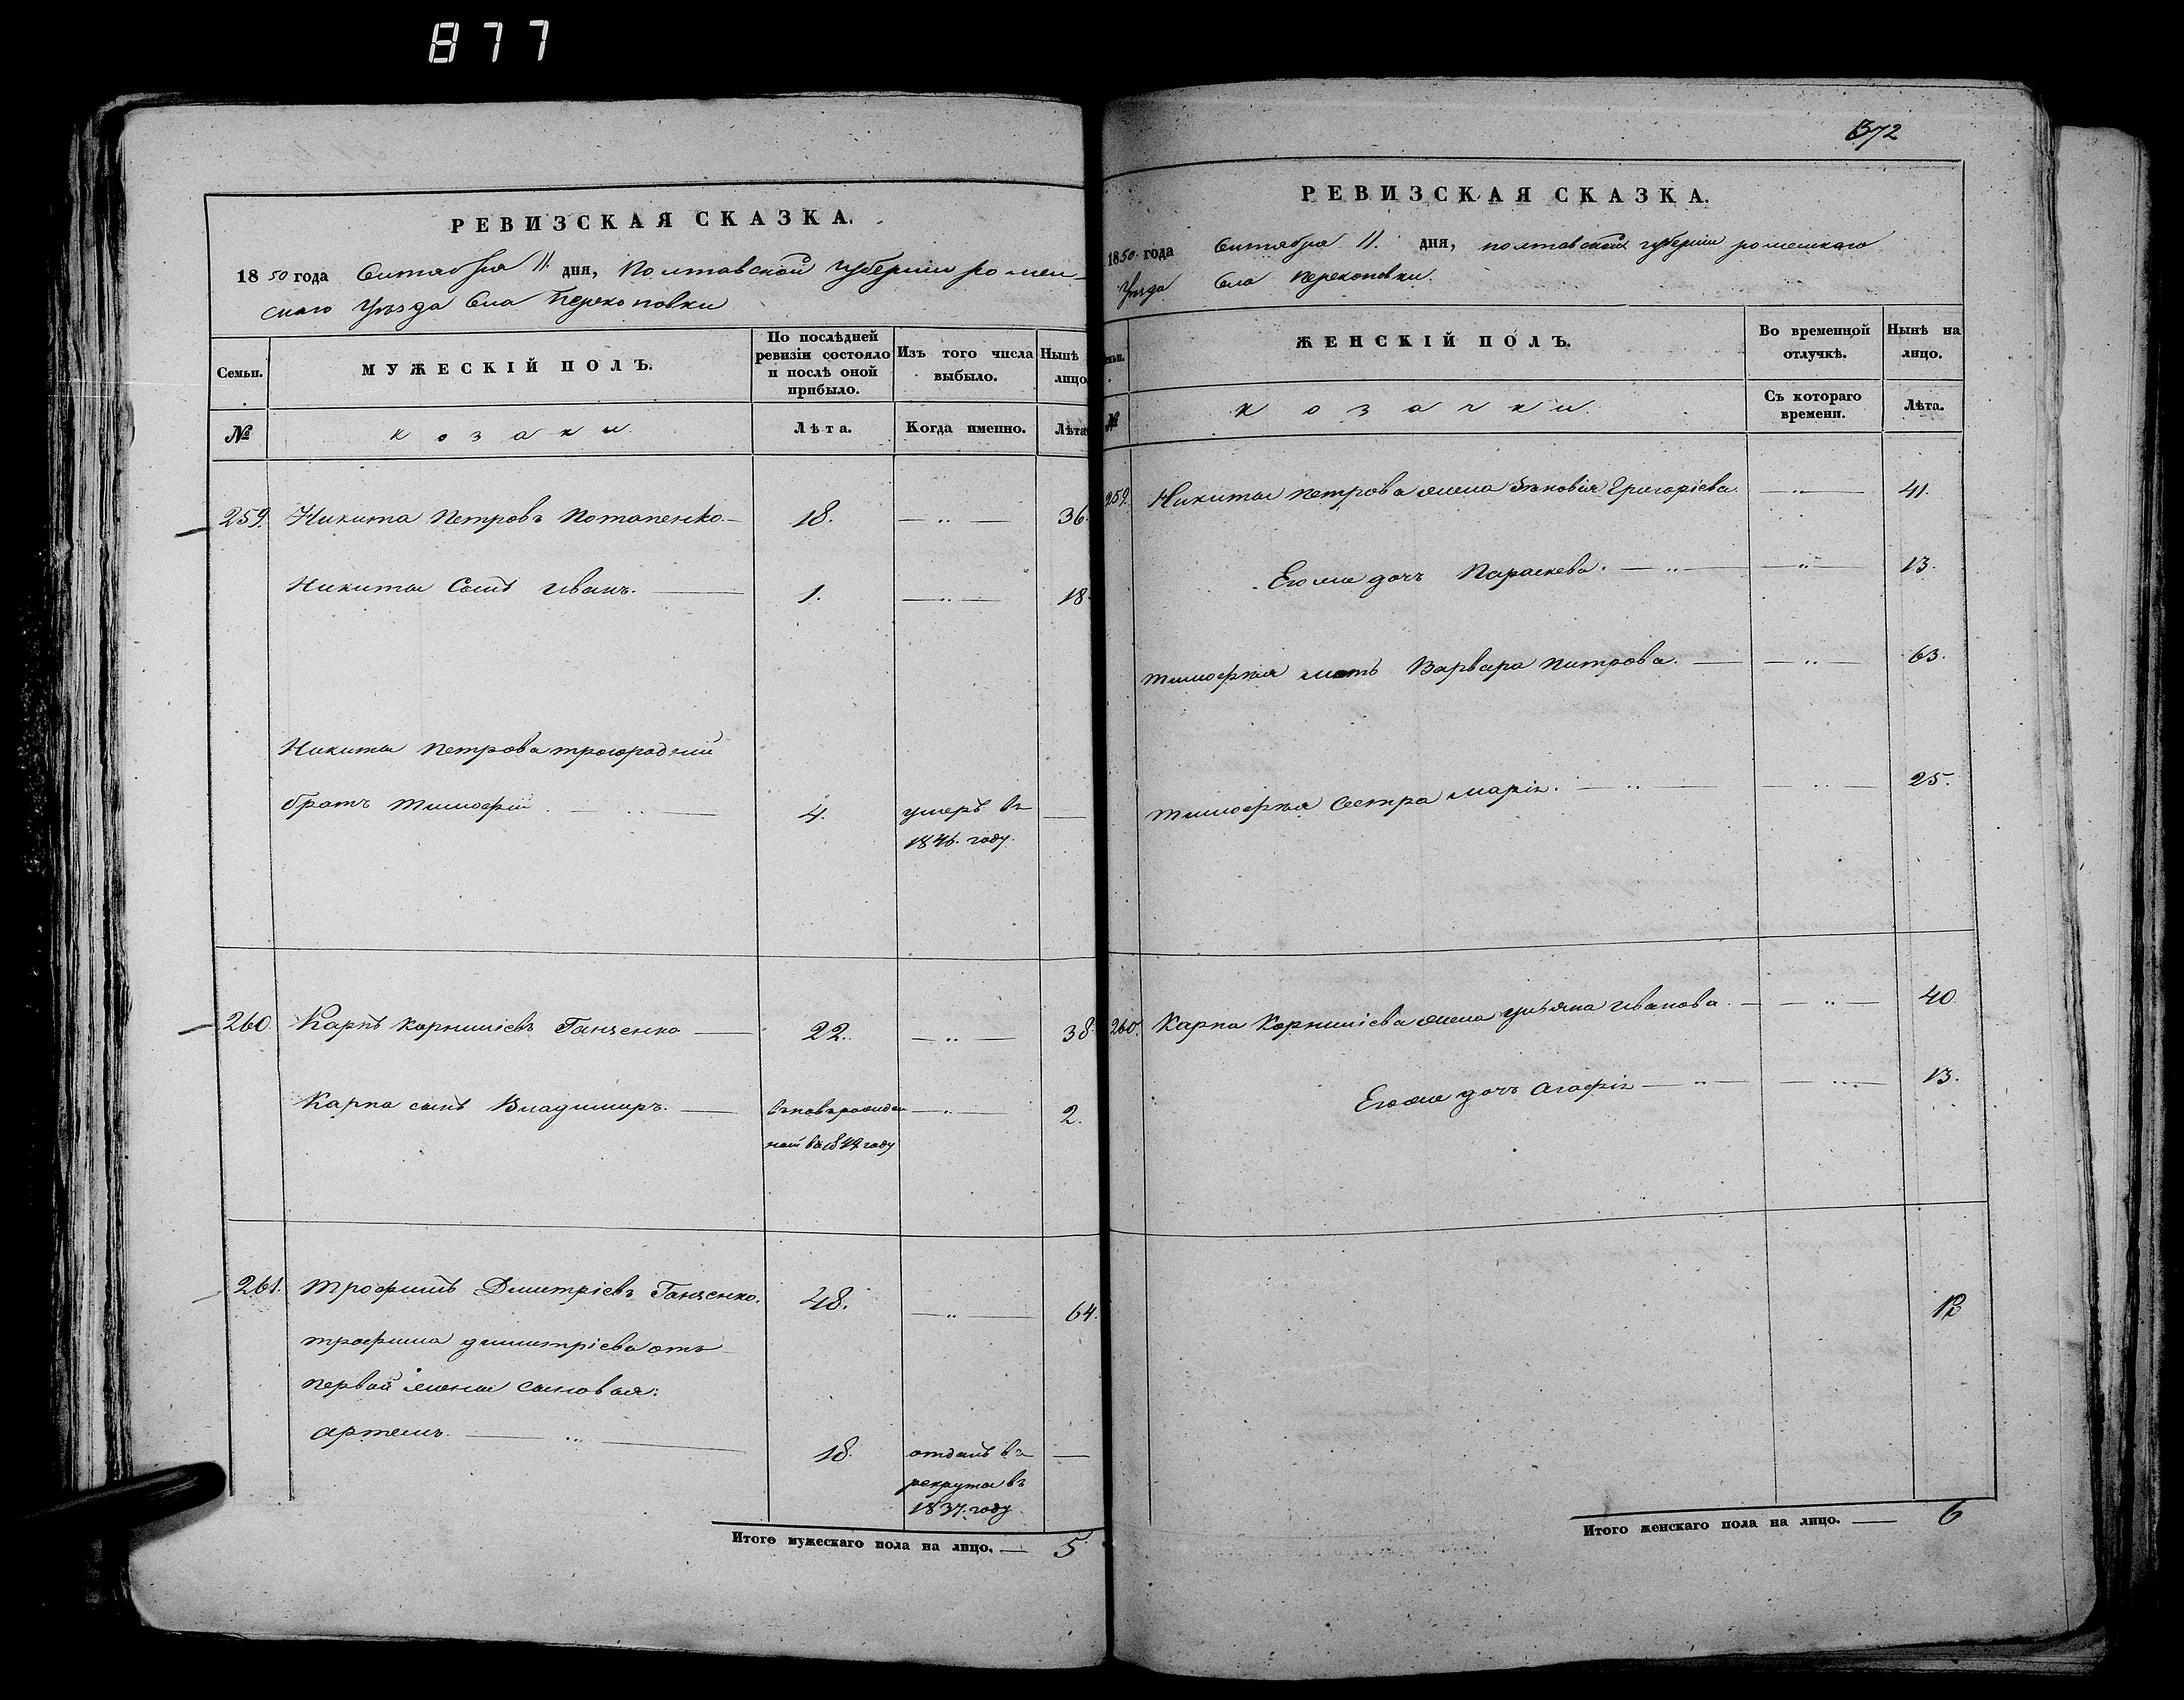 877
РЕВИЗСКАЯ СКАЗКА.
1850 года Сентября 11 дня, Полтавской губернии ромен-
скаго Уѣзда Села Перекоповки
Семьи.
МУЖЕСКІЙ ПОЛЪ.
По послѣдней ревизіи состояло и послѣ оной прибыло.
Изъ того числа выбыло.
Нынѣ лицо
№
козаки
Лѣта.
Когда именно.
Лѣта
259. Никита Петровъ Потапенко. 18. — „ — 36.
Никиты Сынъ Иванъ. 1. — „ — 18.
Никиты Петрова троюродній
братъ Тимофій. 4. умеръ въ —
1846. году.
260. Карпъ Корниліевъ Ганченко — 22. — „ — 38
Карпа сынъ Владимиръ. — 2.
году
261. Трофимъ Дмитріевъ Ганченко. 48. — „ — 64.
трофима димитріева отъ
первой жены сыновья:
Артемъ. — „ — 18. отданъ въ —
рекруты въ
1837. году
Итого мужескаго пола на лицо. — 5
372
РЕВИЗСКАЯ СКАЗКА.
1850 года Сентября 11. дня, полтавской губерніи роменскаго
Уѣзда Села Перекоповки.
ЖЕНСКІЙ ПОЛЪ.
Во временной отлучкѣ.
Нынѣ на лицо.
№
козачки.
Съ котораго времени.
Лѣта.
259. Никиты петрова жена Григоріева. — „ — 41.
Егоже дочь Параскева. — „ — — „ — 13.
тимофія мать Варвара Питрова. — — „ — 63.
тимофія Сестра марія. — „ — — „ — 25.
260. Карпа Корниліева жена ульяна иванова. — — „ — 40
Егоже дочь агафія — „ — — „ — 13.
Итого женскаго пола на лицо. — 6